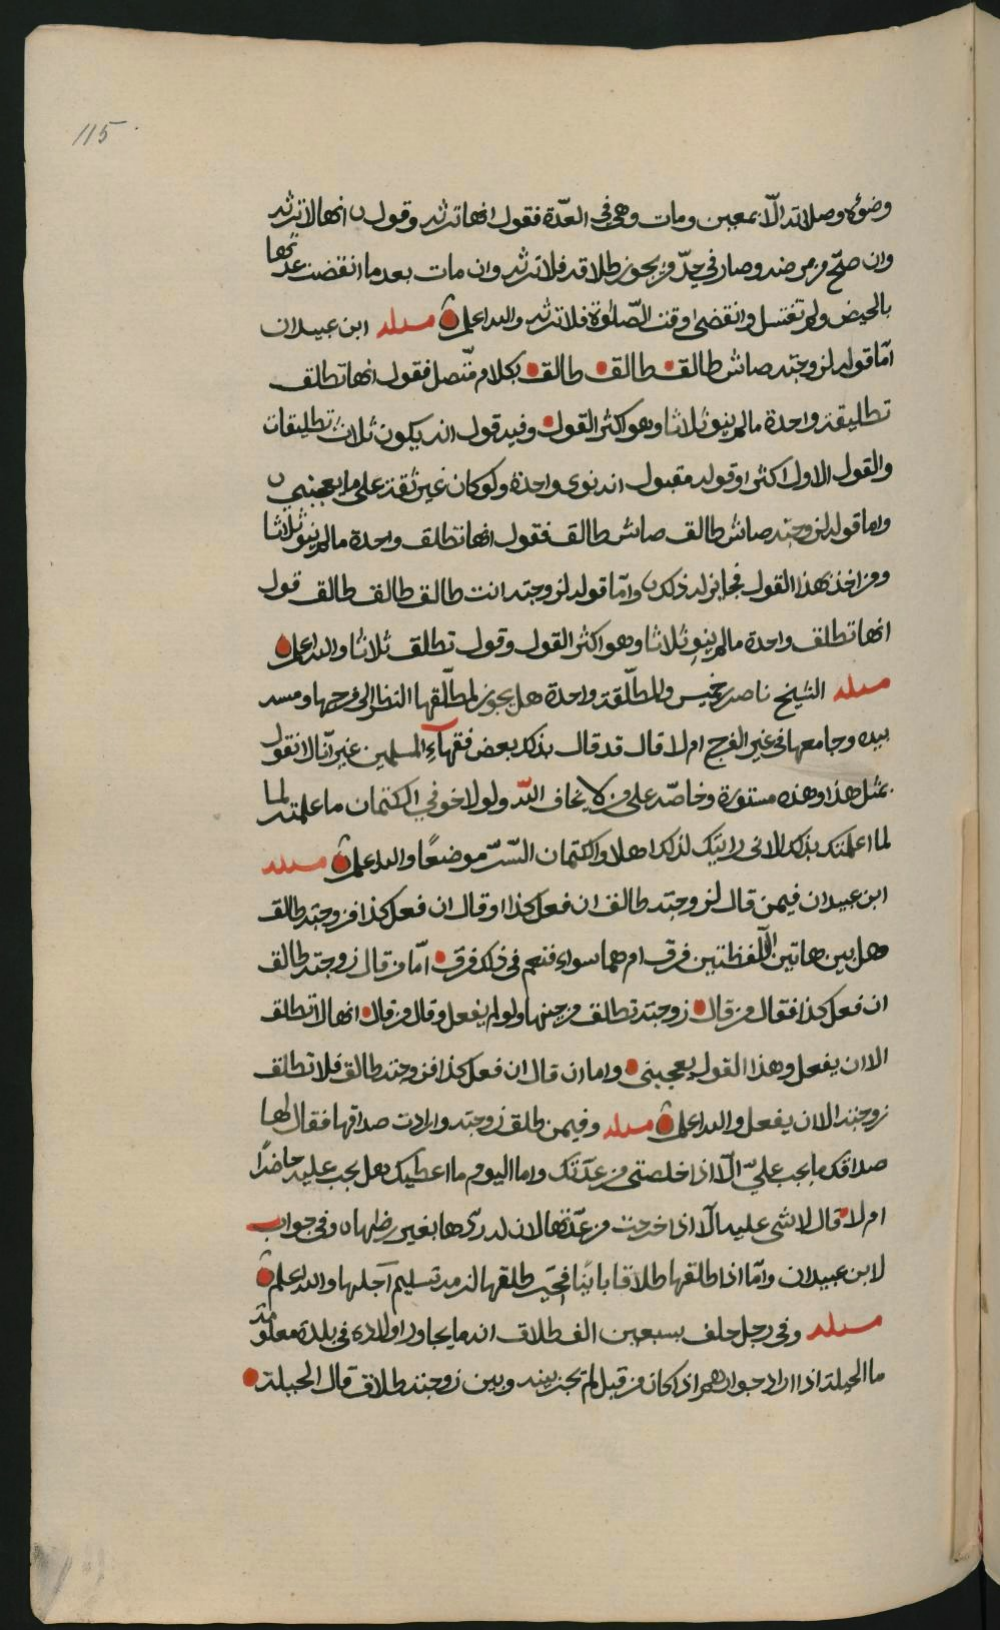 115
وضوئه وصلاته الّا بمعين ومات وهي في العدّة فقول انها ترثه وقول انها لا ترثه
وان صحّ من مرضه وصار في حدّ من يجوز طلاقه فلا ترثه وان مات بعد ما انقضت عدتها
بالحيض ولم تغتسل وانقضى وقت الصّلوة فلا ترثه والله اعلم مسئله ابن عبيدان
امّا قوله لزوجته صاش طالق طالق طالق بكلام متّصل فقول انها تطلق
تطليقة واحدة ما لم ينو ثلاثا وهو اكثر القول وفيه قول انه يكون ثلاث تطليقات
والقول الاول اكثر وقوله مقبول انه نوى واحدة ولو كان غير ثقة على ما يعجبني
واما قوله لزوجته صاش طالق صاش طالق فقول انها تطلق واحدة ما لم ينو ثلاثا
ومن اخذ بهذا القول فجايز له ذلك وامّا قوله لزوجته انت طالق طالق طالق قول
انها تطلق واحدة ما لم ينو ثلاثا وهو اكثر القول وقول تطلق ثلاثا والله اعلم
مسئله الشيخ ناصر بن خميس والمطلّقة واحدة هل يجوز لمطلّقها النظر الى فرجها ومسه
بيده وجامعها في غير الفرج ام لا قال قد قال بذلك بعض فقهآء المسلمين غير انّا لا نقول
بمثل هذا وهذه مستورة وخاصّه على من لا يخاف الله ولولا خوفي الكتمان ما علمته لما
لما اعلمتك بذلك لاني رايتك لذلك اهلا ولكتمان السّرّ موضعًا والله اعلم مسئله
ابن عبيدان فيمن قال لزوجته طالق ان فعل كذا او قال ان فعل كذا فزوجته طالق
هل بين هاتين اللّفظتين فرق ام هما سواء فنعم في ذلك فرق امّا من قال زوجته طالق
ان فعل كذا فقال من قال زوجته تطلق من حينها ولو لم يفعل وقال من قال انها لا تطلق
الا ان يفعل وهذا القول يعجبني واما ان قال ان فعل كذا فزوجته طالق فلا تطلق
زوجته الا ان يفعل والله اعلم مسئله وفيمن طلق زوجته وارادت صداقها فقال لها
صداقك ما يجب عليّ الّا اذا خلصتي من عدّتك واما اليوم ما اعطيك هل يجب عليه حاضرًا
ام لا قال لا شى عليه الّا اذا خرجت من عدّتها لان له ردّها بغير رضاها وفي جواب
لابن عبيدان وامّا اذا طلقها طلاقا باينًا فحين طلقها لزمه تسليم آجلها والله اعلم
مسئله وفي رجل حلف بسبعين الف طلاق انه ما يجاور اولاده في بلدة معلومة
ما الحيلة اذا اراد جوارهم اذا كان من قبل لم تجز بينه وبين زوجته طلاق قال الحيلة